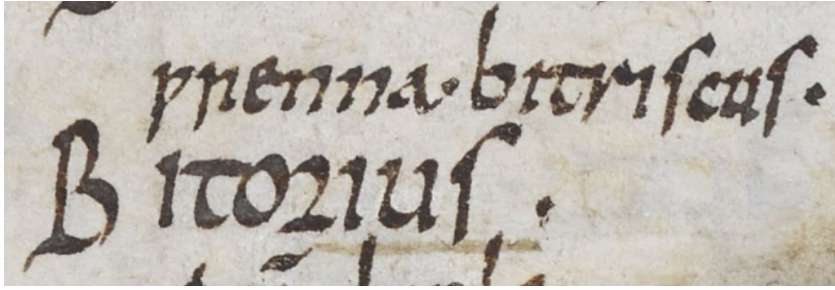 ƿrenna· bitriscus.
Bitorius.